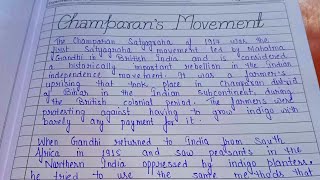 Champaran's Movement
The Champaran Satyagraha of 1917 was the
first Satyagraha movement led by Mahatma
Gandhi in British India and is considered
a historically important rebellion in the Indian
independence movement. It was a farmer's
uprising that took place in Champaran district
of Bihar in the Indian Subcontinent during
the British colonial period. The farmers were
protesting against having to grow indigo with
barely any payment for it.
When Gandhi returned to India from South
Africa in 1915 and saw peasants in the
Northern India oppressed by indigo planters.
he tried to use the same methods that